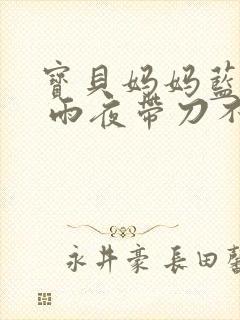 寶貝妈妈藍
雨夜帶刀不
永井豪 長田馨